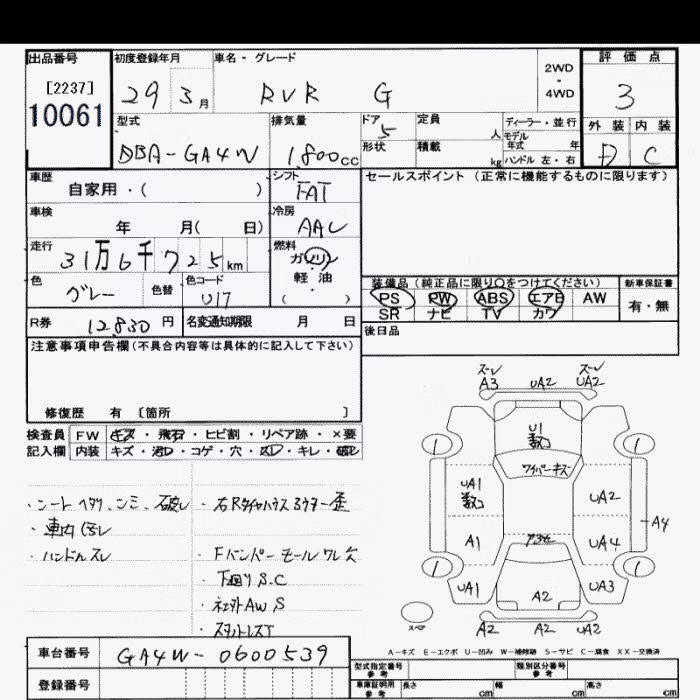 出品番号 初度登録年月 車名・グレード 2WD・4WD 評価点
[2237]
10061
29 3月 RVR G 3
型式 排気量 ドア 定員 人 ディーラー・並行 外装 内装
DBA-GA4W 1,800cc 5 モデル年式 年 D C
形状 積載 kg ハンドル 左・右
車歴 シフト セールスポイント(正常に機能するものに限ります)
自家用・( ) FAT
車検 冷房
年 月( 日) AAC
走行 燃料
31万6千725km ガソリン
軽油
( ・ )
色 色替 色コード 装備品(純正品に限り○をつけてください) 新車保証書
グレー U17 PS PW ABS エアB AW 有・無
SR ナビ TV カワ
R券 12830円 名変通知期限 月 日 後日品
注意事項申告欄(不具合内容等は具体的に記入して下さい)
修復歴 有 〔箇所 〕
検査員 FW キズ・飛石・ヒビ割・リペア跡・×要
記入欄 内装 キズ・汚レ・コゲ・穴・スレ・キレ・破レ
ズレ ズレ
A3 UA2 UA2
U1
数コ
ワイパーキズ
UA1
数コ
UA2
A4
A1
UA4
UA1
UA3
A2
A2 A2 UA2
スペア
・シート ヘタリ、シミ、破レ
・車内 汚レ
・ハンドル スレ
・Fバンパー モール ワレ 欠
・下廻り S.C
・社外AW S
A-キズ E-エクボ U-凹み W-補修跡 S-サビ C-腐食 XX-交換済
車台番号 GA4W-0600539
登録番号
型式指定番号 参考 類別区分番号 参考
車庫証明用 参考 長さ cm 幅 cm 高さ cm